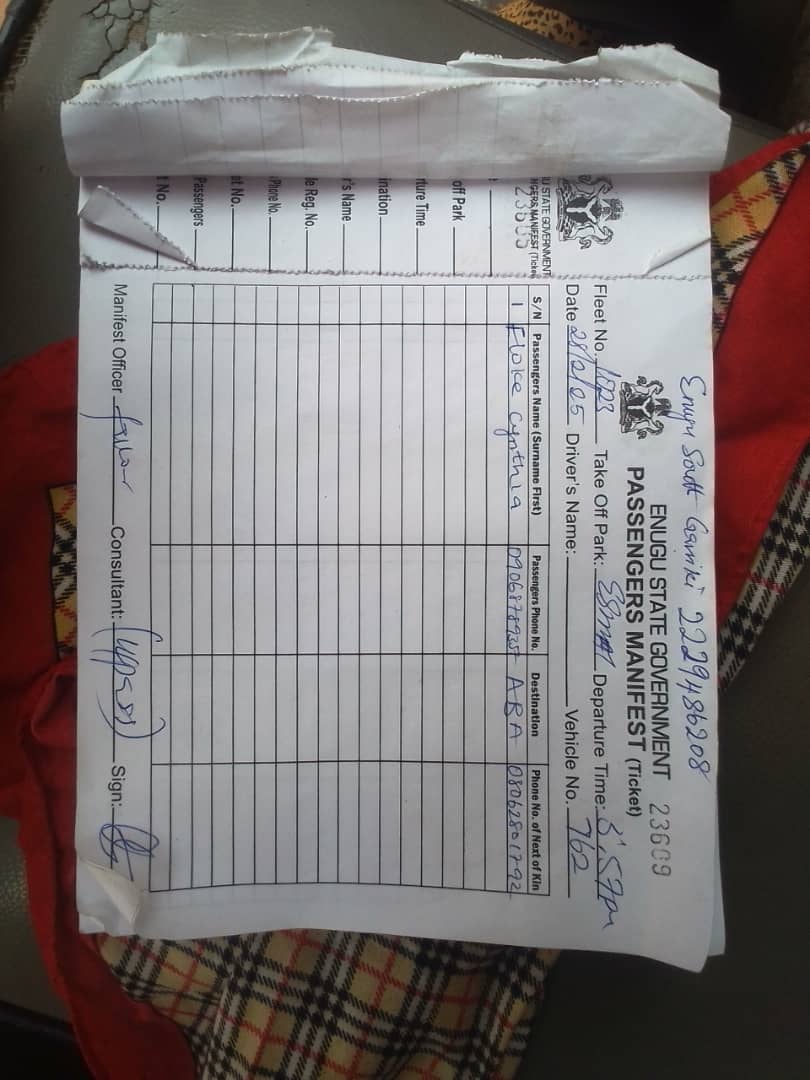 Enugu South Gariki 2229486208
ENUGU STATE GOVERNMENT 23609
PASSENGERS MANIFEST (Ticket)
Fleet No. Take Off Park: ESMAT Departure Time: 5:57pm
Date 28/2/25 Driver's Name: Vehicle No. 762
S/N Passengers Name (Surname First) Passengers Phone No. Destination Phone No. of Next of Kin
1 Eloke Cynthia ABA 08062801792
Manifest Officer Consultant: Sign:
U STATE GOVERNMENT
NGERS MANIFEST (Ticket
off Park
rture Time
ination
r's Name
le Reg. No.
Phone No.
nt No.
Passengers
t No.